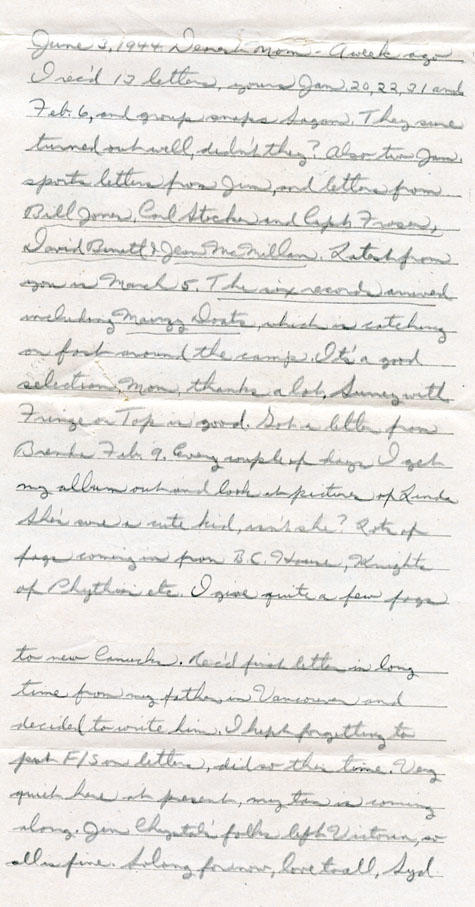 June 3, 1944. Dearest Mom - A week ago
I rec'd 12 letters, yours Jan 20, 22, 31 and
Feb. 6, and group snaps Sagan. They sure
turned out well, didn't they? Also two Jan.
sports letters from Jim, and letters from
Bill Jones, Carl Stocker and Capt. Fraser,
David Binett & Jean McMillan. Latest from
you is March 5. The six records arrived
including Mairzy Doats, which is catching
on fast around the camp. It's a good
selection, Mom, thanks a lot. Surrey with
Fringe on Top is good. Got a letter from
Brenda Feb. 9. Every couple of days I get
my album out and look at pictures of Linda
She's sure a cute kid, isn't she? Lots of
fags coming in from B.C. House, Knights
of Phythias etc. I give quite a few fags
to new Canucks. Rec'd first letter in long
time from my father in Vancouver and
decided to write him. I kept forgetting to
put F/S on letters, did so this time. Very
quiet here at present, my tan is coming
along. Jim Chrystal's folks left Victoria, so
all is fine. So long for now, love to all, Syd.